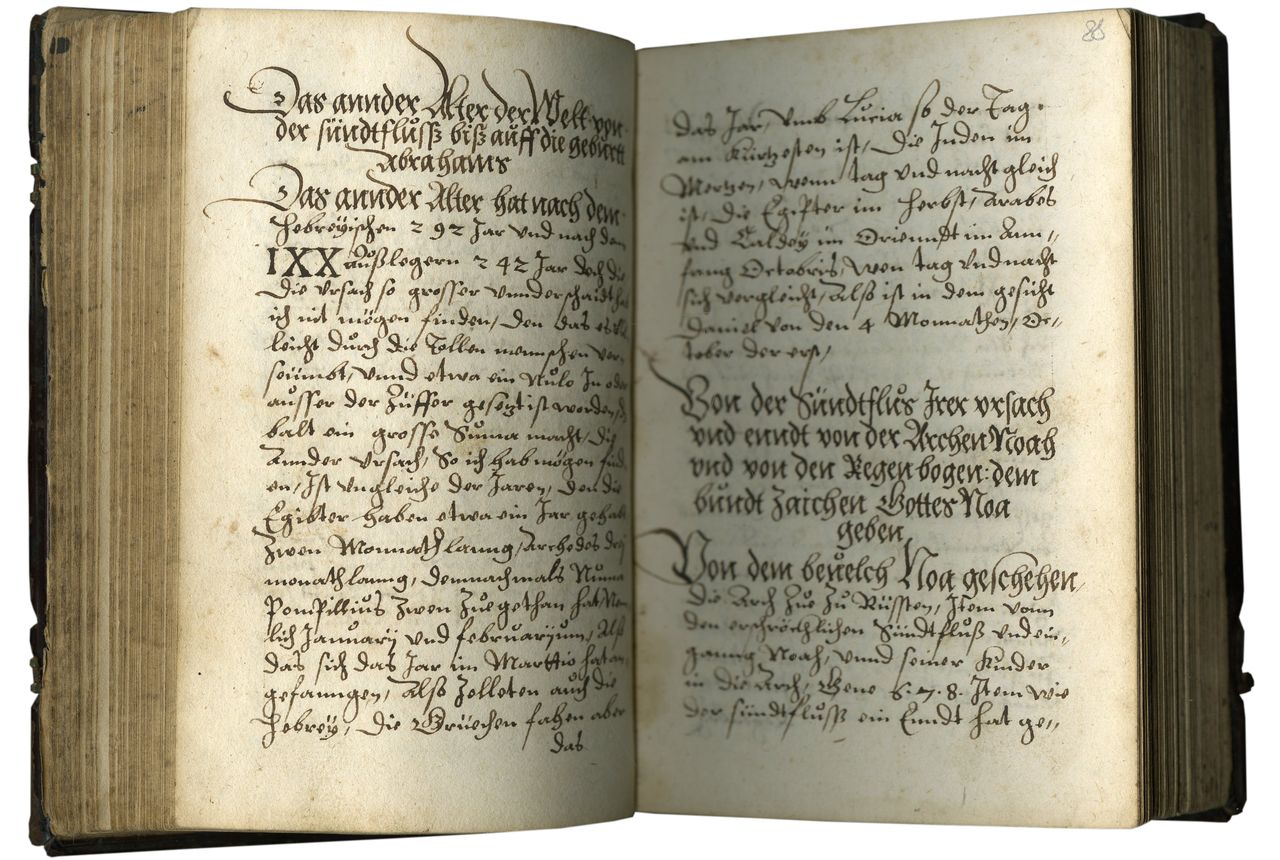 Das annder Alter der Welt von
der sündtflusß biß auff die geburtt
Abrahams
Das annder Alter hat nach dem
Hebreÿischen 292 Jar vnd nach den
IXX außlegern 242 Jar doch die
die vrsach so grosser vnnderschaidt hab
ich nit mögen finden, den das es vil
leicht durch die Tollen mennschen ver-
seümbt, vnnd etwa ein Nulo In oder
ausser der Züffer gesetzt ist worden,
balt ein grosse Suma macht, die
Annder vrsach, So ich hab mögen find
en, Ist vngleiche der Jaren, den die
Egibter haben etwa ein Jar gehabt
Zwen Monnath lanng, Archedes dreÿ
monath lanng, demnachmals Numa
Pompillius Zwen Zuegethan hat Nem
lich Januarÿ vnd februarÿum, Alß
das sich das Jar im Marttio hat an
gefanngen, Alß Zelleten auch die
Hebreÿ, Die Gruechen fahen aber
das
88
das Jar, vmb Lucia so der Tag
am Kürtzesten ist, Die Inden im
Mertzen, wenn tag vnd nacht gleich
ist, Die Egipter im Herbst, Arabes
vnd Caldeÿ im Orienndt im Ann-
fang Octobris, wen tag vnd nacht
sich vergleicht, Alß ist in dem gesicht
Daniel von den 4 Monnathen, Oc-
tober der erst,
Von der Sündtflus Irer vrsach
vnd enndt von der Archen Noah
vnd von den Regenbogen: dem
bundt Zaichen Gottes Noa
geben
Von dem beuelch Noa geschehen,
die Arch Zue Zu Rüssten, Item vonn
den erschröchlichen Sündtfluß vnd ein-
ganng Noah, vnnd seiner Kinder
in die Arch, Gene 6. 7. 8. Item wie
der sündtflusß ein Enndt hat ge-